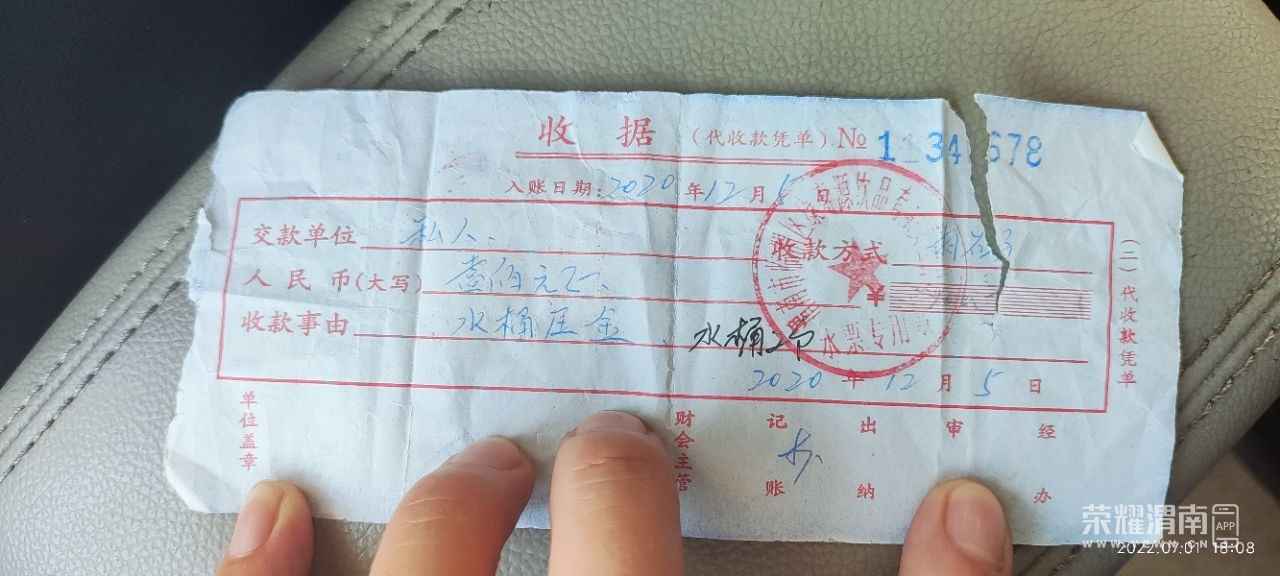 收 据 (代收款凭单) № 1 34 678
入账日期: 2020 年 12 月 5 日
交款单位 私人 收款方式
人 民 币(大写) 壹佰元正 ¥
收款事由 水桶压金、水桶2个
2020 年 12 月 5 日
水票专用章
(二) 代收款凭单
单位盖章 财会主管 记账 出纳 审 经办
荣耀渭南 APP
2022.07.01 18:08